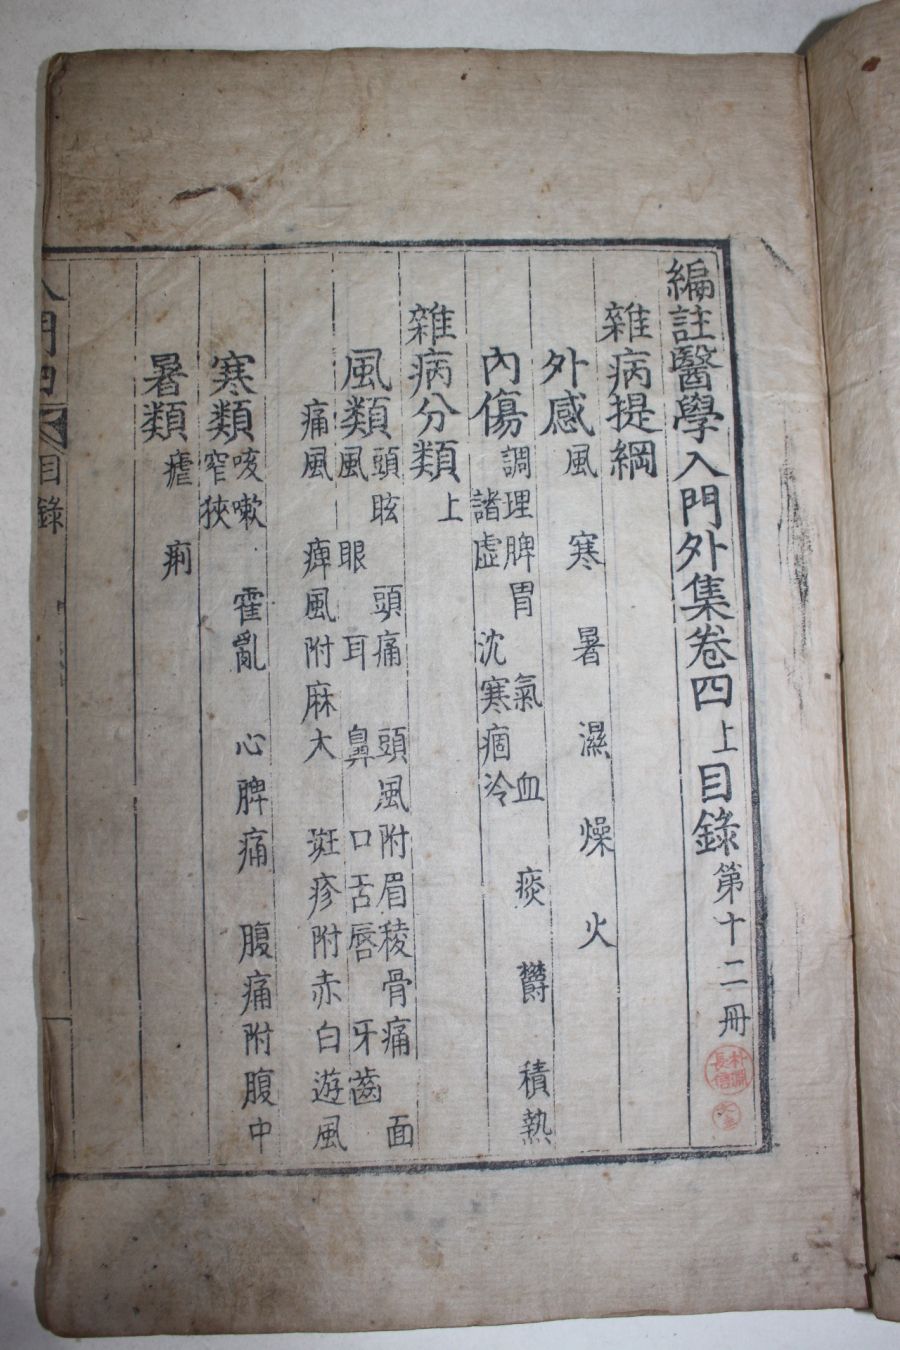 編註醫學入門外集卷四上目錄 第十二冊
雜病提綱
外感 風 寒 暑 濕 燥 火
內傷 調理脾胃 氣 血 痰 欝 積熱
諸虛 沈寒痼冷
雜病分類上
風類 頭眩 頭痛 頭風附眉稜骨痛 面
風 眼 耳 鼻 口舌唇 牙齒
痛風 痺風附麻木 斑疹附赤白遊風
寒類 咳嗽 霍亂 心脾痛 腹痛附腹中
窄狹
暑類 瘧 痢
入門四 目錄